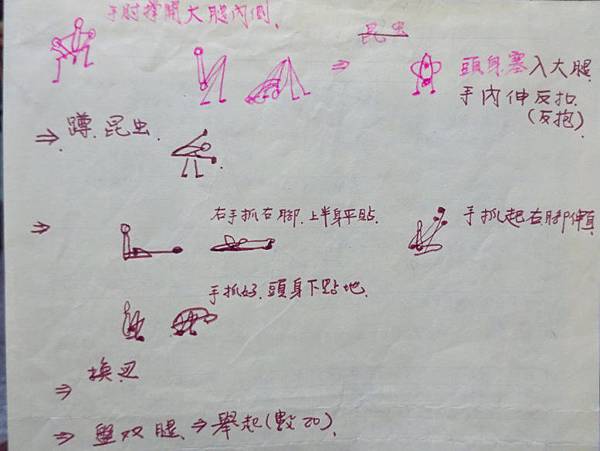 手肘撐開大腿內側.
昆虫
⇒ 頭身塞入大腿
手內伸反扣
(反抱)
⇒ 蹲.昆虫.
⇒ 右手抓右腳.上半身平貼.
手抓起右腳伸直
手抓好.頭身下貼地.
⇒ 換边
⇒ 盤双腿 ⇒ 舉起(數20).